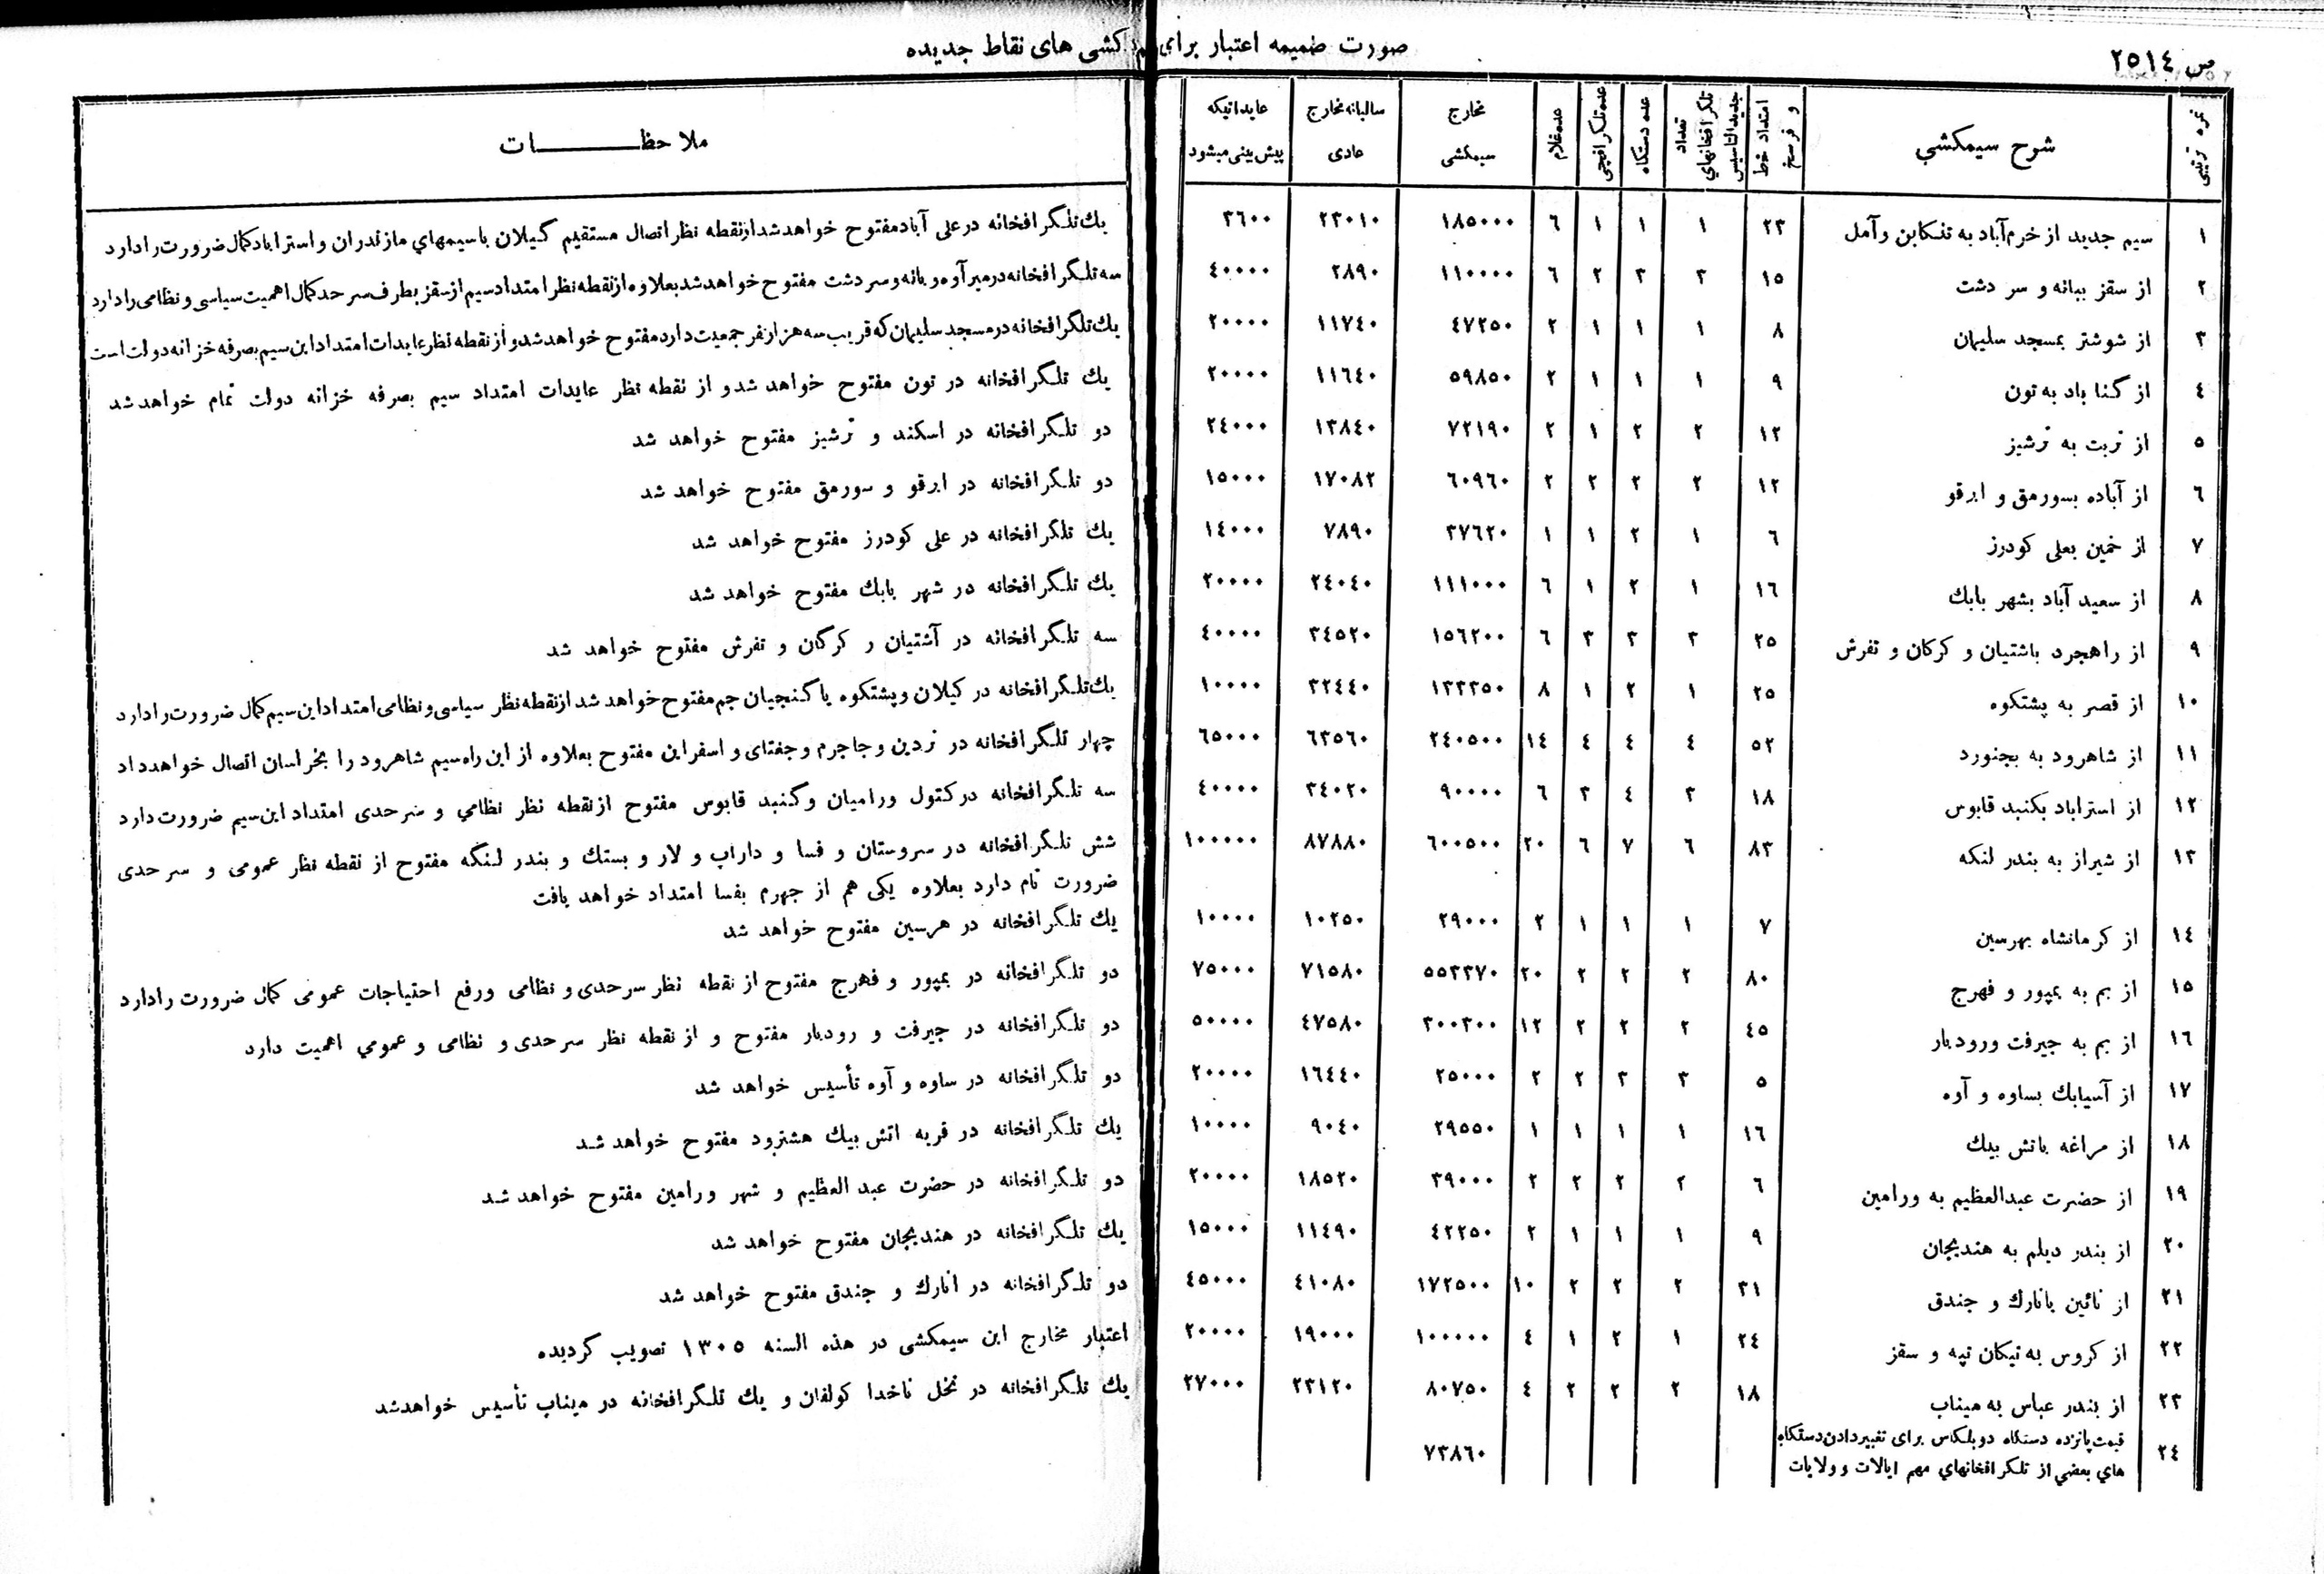 ص ٢٥١٤
صورت ضمیمه اعتبار برای کشی های نقاط جدیده
نمره ترتیبی | شرح سیمکشی | امتداد خط و فرسخ | تعداد تلگرافخانهای جدیدالتأسیس | عده دستگاه | عده تلگرافچی | عده غلام | مخارج سیمکشی | سالیانه مخارج عادی | عایداتیکه پیش بینی میشود | ملاحظات
١ | سیم جدید از خرم‌آباد به تنکابن و آمل | ٢٣ | ١ | ١ | ١ | ٦ | ١٨٥٠٠٠ | ٢٣٠١٠ | ٣٦٠٠ | یك تلگرافخانه در علی آباد مفتوح خواهد شد از نقطه نظر اتصال مستقیم گیلان با سیمهای مازندران و استراباد کمال ضرورت را دارد
٢ | از سقز ببانه و سر دشت | ١٥ | ٣ | ٣ | ٢ | ٦ | ١١٠٠٠٠ | ٢٨٩٠ | ٤٠٠٠٠ | سه تلگرافخانه در میرآوه و بانه و سر دشت مفتوح خواهد شد بعلاوه از نقطه نظر امتداد سیم از سقز بطرف سرحد کمال اهمیت سیاسی و نظامی را دارد
٣ | از شوشتر بمسجد سلیمان | ٨ | ١ | ١ | ١ | ٢ | ٤٧٢٥٠ | ١١٧٤٠ | ٢٠٠٠٠ | یك تلگرافخانه در مسجد سلیمان که قریب سه هزار نفر جمعیت دارد مفتوح خواهد شد و از نقطه نظر عایدات امتداد این سیم بصرفه خزانه دولت است
٤ | از گنا باد به تون | ٩ | ١ | ١ | ١ | ٢ | ٥٩٨٥٠ | ١١٦٤٠ | ٢٠٠٠٠ | یك تلگرافخانه در تون مفتوح خواهد شد و از نقطه نظر عایدات امتداد سیم بصرفه خزانه دولت تمام خواهد شد
٥ | از تربت به ترشیز | ١٢ | ٢ | ٢ | ١ | ٢ | ٧٢١٩٠ | ١٣٨٤٠ | ٢٤٠٠٠ | دو تلگرافخانه در اسکند و ترشیز مفتوح خواهد شد
٦ | از آباده بسورمق و ابرقو | ١٢ | ٢ | ٢ | ٢ | ٢ | ٦٠٩٦٠ | ١٧٠٨٢ | ١٥٠٠٠ | دو تلگرافخانه در ابرقو و سورمق مفتوح خواهد شد
٧ | از خمین بعلی کودرز | ٦ | ١ | ٢ | ١ | ١ | ٣٧٦٢٠ | ٧٨٩٠ | ١٤٠٠٠ | یك تلگرافخانه در علی کودرز مفتوح خواهد شد
٨ | از سعید آباد بشهر بابك | ١٦ | ١ | ٢ | ١ | ٦ | ١١١٠٠٠ | ٢٤٠٤٠ | ٢٠٠٠٠ | یك تلگرافخانه در شهر بابك مفتوح خواهد شد
٩ | از راهجرد باشتیان و کرکان و تفرش | ٢٥ | ٣ | ٣ | ٣ | ٦ | ١٥٦٢٠٠ | ٣٤٥٢٠ | ٤٠٠٠٠ | سه تلگرافخانه در آشتیان و کرکان و تفرش مفتوح خواهد شد
١٠ | از قصر به پشتکوه | ٢٥ | ١ | ٢ | ١ | ٨ | ١٣٣٣٥٠ | ٣٢٤٤٠ | ١٠٠٠٠ | یك تلگرافخانه در کیلان و پشتکوه یا کنجیان جم مفتوح خواهد شد از نقطه نظر سیاسی و نظامی امتداد این سیم کمال ضرورت را دارد
١١ | از شاهرود به بجنورد | ٥٢ | ٤ | ٤ | ٤ | ١٤ | ٢٤٠٥٠٠ | ٦٣٥٦٠ | ٦٥٠٠٠ | چهار تلگرافخانه در نردین و جاجرم و جغتای و اسفراین مفتوح بعلاوه از این راه سیم شاهرود را بخراسان اتصال خواهد داد
١٢ | از استراباد بکنبد قابوس | ١٨ | ٣ | ٤ | ٣ | ٦ | ٩٠٠٠٠ | ٣٤٠٢٠ | ٤٠٠٠٠ | سه تلگرافخانه در کتول و رامیان و گنبد قابوس مفتوح از نقطه نظر نظامی و سرحدی امتداد این سیم ضرورت دارد
١٣ | از شیراز به بندر لنکه | ٨٣ | ٦ | ٧ | ٦ | ٢٠ | ٦٠٠٥٠٠ | ٨٧٨٨٠ | ١٠٠٠٠٠ | شش تلگرافخانه در سروستان و فسا و داراب و لار و بستك و بندر لنگه مفتوح از نقطه نظر عمومی و سرحدی
ضرورت تام دارد بعلاوه یکی هم از جهرم بفسا امتداد خواهد یافت
١٤ | از کرمانشاه بهرسین | ٧ | ١ | ١ | ١ | ٢ | ٢٩٠٠٠ | ١٠٢٥٠ | ١٠٠٠٠ | یك تلگرافخانه در هرسین مفتوح خواهد شد
١٥ | از بم به بمپور و فهرج | ٨٠ | ٢ | ٢ | ٢ | ٢٠ | ٥٥٣٣٧٠ | ٧١٥٨٠ | ٧٥٠٠٠ | دو تلگرافخانه در بمپور و فهرج مفتوح از نقطه نظر سرحدی و نظامی و رفع احتیاجات عمومی کمال ضرورت را دارد
١٦ | از بم به جیرفت و رودبار | ٤٥ | ٢ | ٢ | ٢ | ١٢ | ٣٠٠٣٠٠ | ٤٧٥٨٠ | ٥٠٠٠٠ | دو تلگرافخانه در جیرفت و رودبار مفتوح و از نقطه نظر سرحدی و نظامی و عمومی اهمیت دارد
١٧ | از آسیابك بساوه و آوه | ٥ | ٣ | ٣ | ٢ | ٢ | ٢٥٠٠٠ | ١٦٤٤٠ | ٢٠٠٠٠ | دو تلگرافخانه در ساوه و آوه تأسیس خواهد شد
١٨ | از مراغه باتش بیك | ١٦ | ١ | ١ | ١ | ١ | ٢٩٥٥٠ | ٩٠٤٠ | ١٠٠٠٠ | یك تلگرافخانه در قریه اتش بیك هشترود مفتوح خواهد شد
١٩ | از حضرت عبدالعظیم به ورامین | ٦ | ٢ | ٢ | ٢ | ٢ | ٣٩٠٠٠ | ١٨٥٢٠ | ٢٠٠٠٠ | دو تلگرافخانه در حضرت عبدالعظیم و شهر ورامین مفتوح خواهد شد
٢٠ | از بندر دیلم به هندیجان | ٩ | ١ | ١ | ١ | ٢ | ٤٢٢٥٠ | ١١٤٩٠ | ١٥٠٠٠ | یك تلگرافخانه در هندیجان مفتوح خواهد شد
٢١ | از نائین بانارك و جندق | ٣١ | ٢ | ٢ | ٢ | ١٠ | ١٧٢٥٠٠ | ٤١٠٨٠ | ٤٥٠٠٠ | دو تلگرافخانه در انارك و جندق مفتوح خواهد شد
٢٢ | از کروس به تیکان تپه و سقز | ٢٤ | ١ | ٢ | ١ | ٤ | ١٠٠٠٠٠ | ١٩٠٠٠ | ٢٠٠٠٠ | اعتبار مخارج این سیمکشی در هذه السنه ١٣٠٥ تصویب کردیده
٢٣ | از بندر عباس به میناب | ١٨ | ٢ | ٢ | ٢ | ٤ | ٨٠٧٥٠ | ٢٣١٢٠ | ٢٧٠٠٠ | یك تلگرافخانه در نخل ناخدا کولفان و یك تلگرافخانه در میناب تأسیس خواهد شد
٢٤ | قیمت پانزده دستگاه دوبلکس برای تغییر دادن دستگاه
های بعضی از تلگرافخانهای مهم ایالات و ولایات | ٧٣٨٦٠